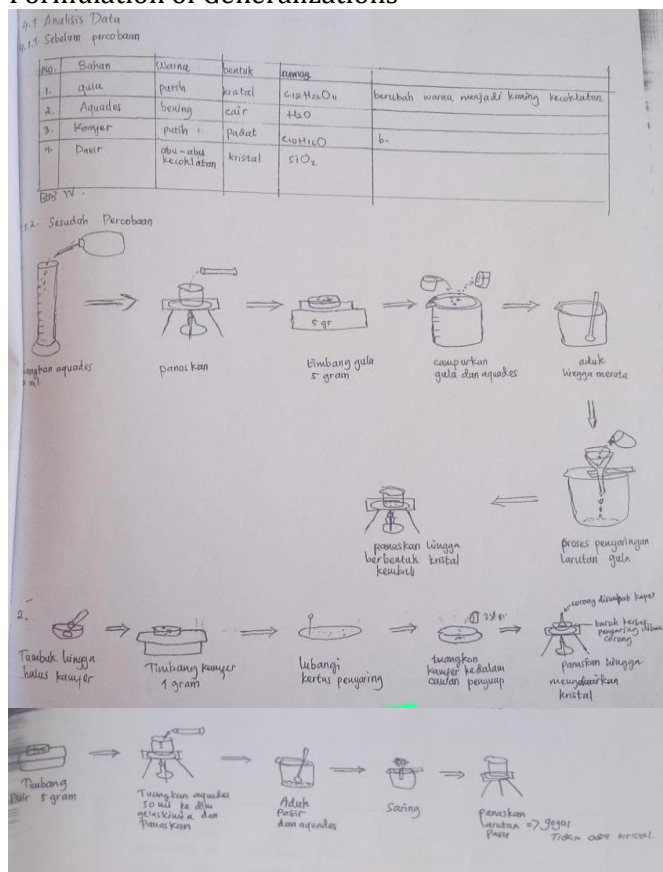 Formulation of Generalizations
4.1 Analisis Data
4.1.1 Sebelum percobaan
No. Bahan Warna bentuk
1. gula putih kristal C12H22O11 berubah warna menjadi kuning kecoklatan
2. Aquades bening cair H2O
3. Kamfer putih padat C10H16O b-
4. Pasir abu-abu kecoklatan kristal SiO2
BAB IV.
1.2. Sesudah Percobaan
5 gr
aquades
ml
panaskan
timbang gula
5 gram
campurkan
gula dan aquades
aduk
hingga merata
proses penyaringan
larutan gula
panaskan hingga
berbentuk kristal
kembali
2.
Tumbuk hingga
halus kamfer
Timbang kamfer
1 gram
lubangi
kertas penyaring
tuangkan
kamfer kedalam
cawan penguap
corong disumbat kapas
taruh kertas
penyaring dibawah
corong
panaskan hingga
mengeluarkan
kristal
Timbang
Pasir 5 gram
Tuangkan aquades
50 ml ke dlm
gelas kimia dan
Panaskan
Aduk
Pasir
dan aquades
Saring
panaskan
Larutan => gagal
Pasir Tidak ada kristal.